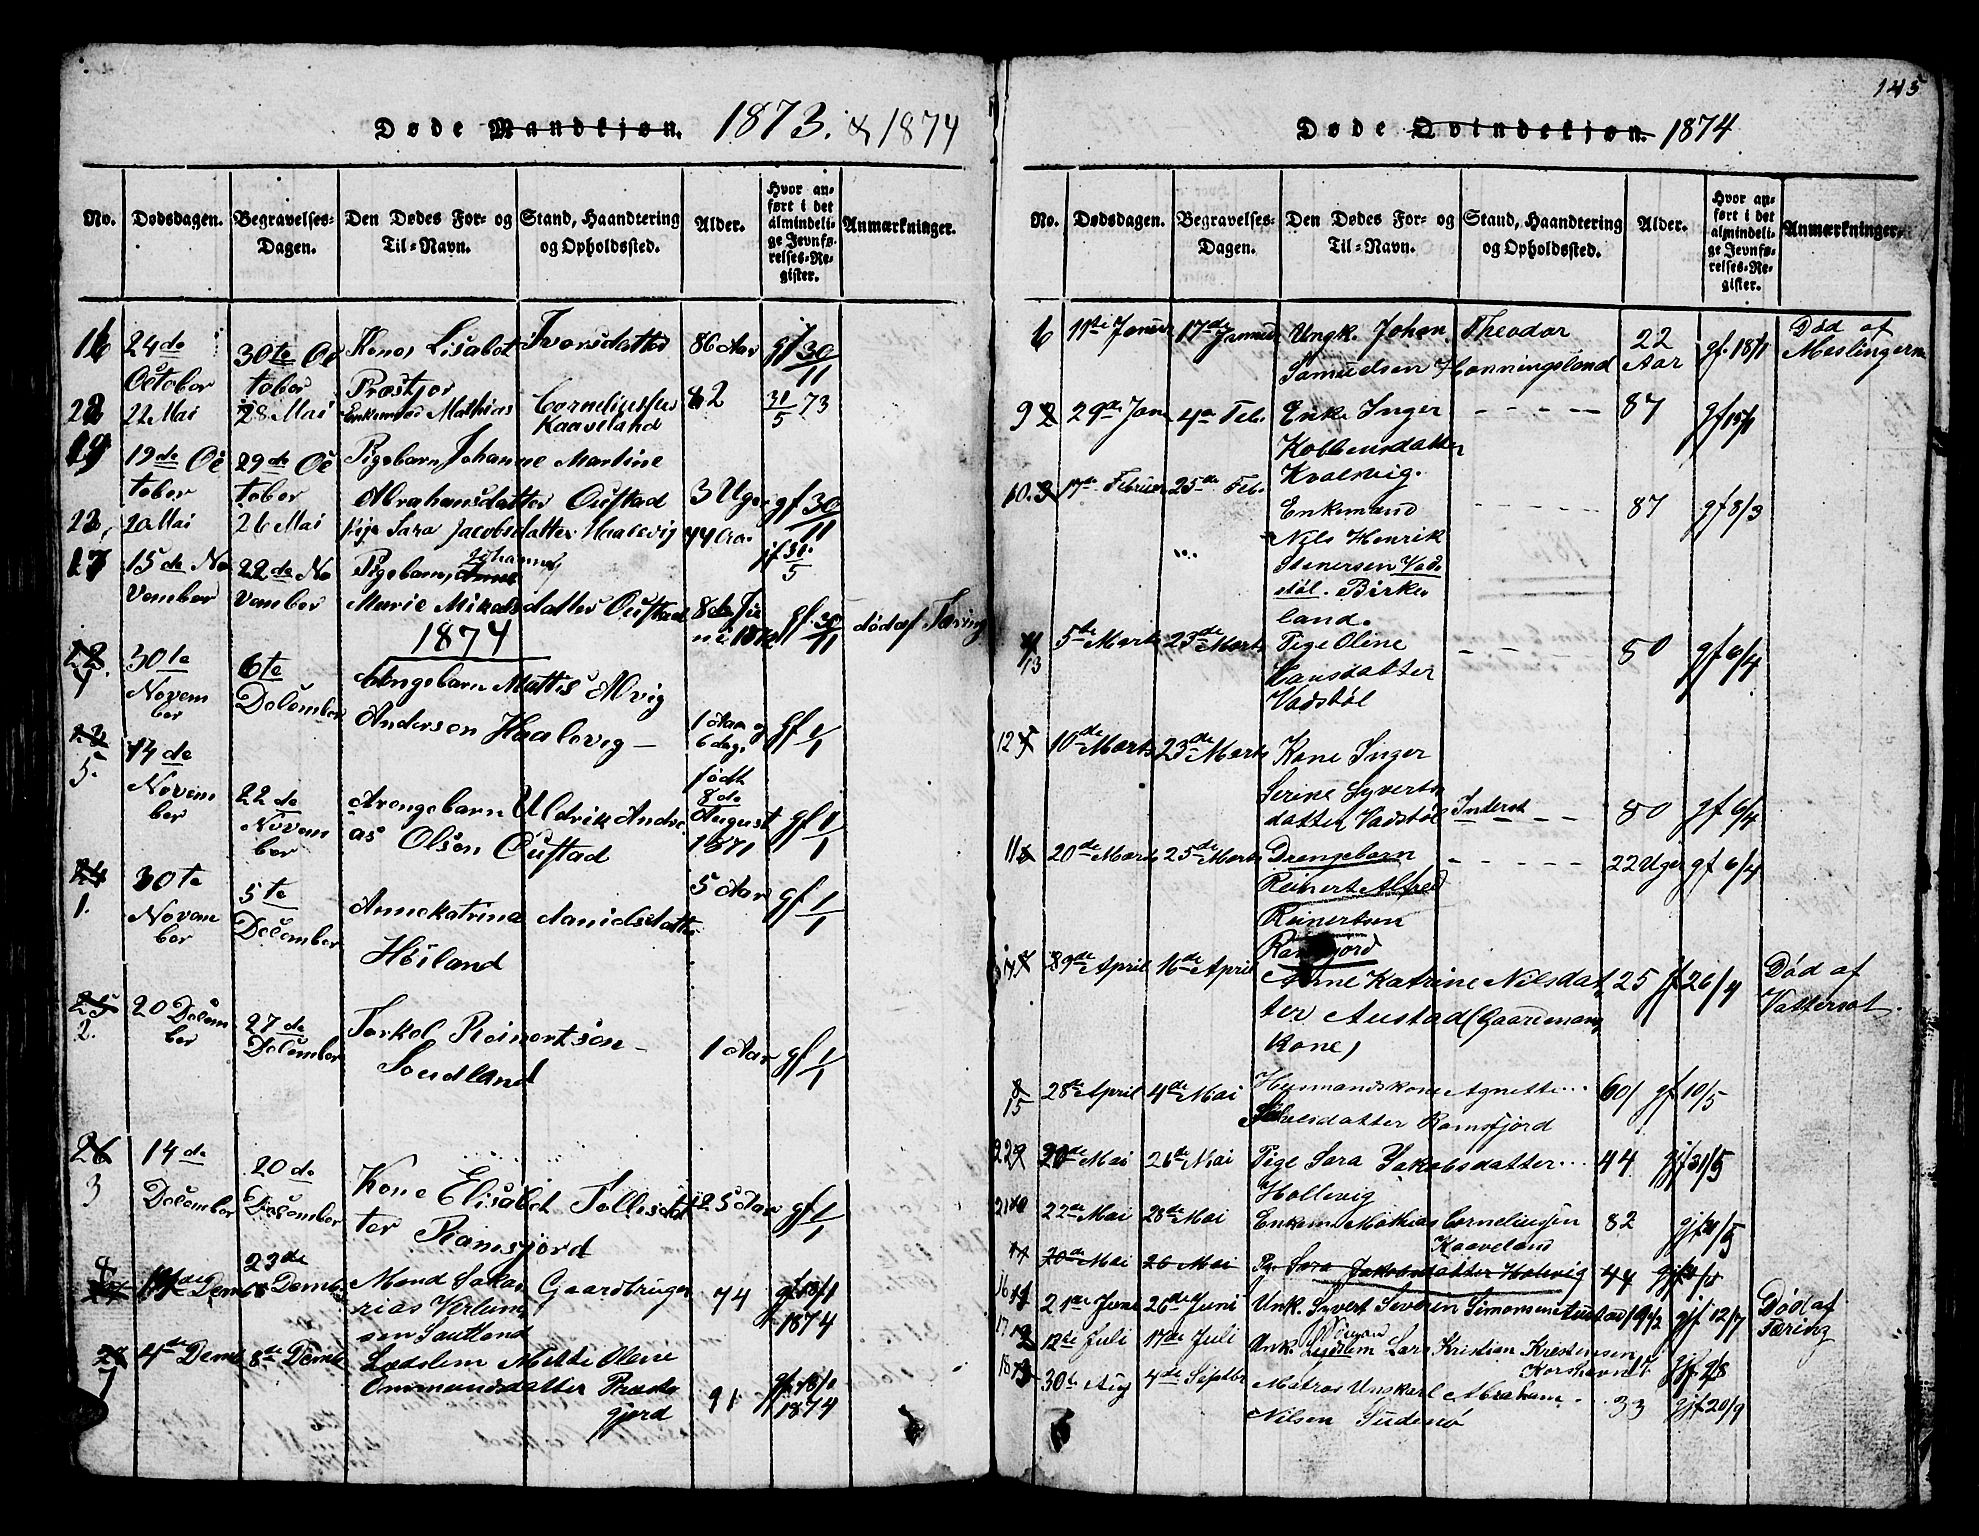 145
Døde Mandkjøn. 1873. & 1874
No. Dødsdagen. Begravelses-Dagen. Den Dødes For- og Til-Navn. Stand, Haandtering og Opholdssted. Alder. Hvor anført i det almindelige Jevnførelses-Register. Anmærkninger.
16 24de October 30te October Kone Lisabet Ivarsdatter Præstjor 86 Aar gf 30/11
22 Mai 28 Mai Enkemand Mathias Corneliussen Kaaveland 82 31/5 73
19 19de October 29de October Pigebarn Johanne Martine Abrahamsdatter Oustad 3 Uger gf 30/11
22, 20 Mai 26 Mai Pige Sara Jacobsdatter Haalevig 44 Aar jf 31/5
17 15de November 22de November Pigebarn Johanne Marie Mikalsdatter Oustad 8de Juni 1872 gf 30/11 død af Tæring
1874
22 4 30te November 6te December Ungebarn Mattis Alvig Andersen Haalevig — 1 Aar og 6 dage gf 1/1
5. 14de November 22de November Drengebarn Uldrik Andreas Olsen Oustad født 8de August 1871 gf 1/1
24 1. 30te November 5te December Annekatrine Danielsdatter Høiland 5 Aar gf 1/1
25 2. 20 December 27de December Torkel Reinertsen — Soudland 1 Aar gf 1/1
26 3 14de December 20de December Kone Elisabet Tollesdatter Ramsfjord 25 Aar gf 1/1
23de Mand Sakarias Verlumsen Sautland Gaardbruger 74 gf 18/1 1874
27 7 4de Decmb 8de Decmb Lædslem Mette Olene Ommundsdatter Præstegjerd 91 gf 18/1 1874
Døde Qvindekjøn. 1874
No. Dødsdagen. Begravelses-Dagen. Den Dødes For- og Til-Navn. Stand, Haandtering og Opholdssted. Alder. Hvor anført i det almindelige Jevnførelses-Register. Anmærkninger.
6 11te Januar 17de Januar Ungk. Johan Theodor Samuelsen Honningsland 22 Aar gf. 18/1 Død af Meslingerne
9 2 29de Jan 4de Feb. Enke Inger Kobbensdatter Kvalsvig. 87 gf 15/1
10. 3 17de Februar 25de Feb. Enkemand Nils Henrik Stenersen Vadstøl. Birkeland. 87 gf 8/3
4 13 5te Marts 23de Marts Pige Oline Hansdatter Vadstøl 80 gf 6/4
12 5 10de Marts 23de Marts Kone Inger Serine Syvertsdatter Vadstøl Inderst 80 gf 6/4
11 6 20de Marts 25de Marts Drengebarn Reinert Alfred Reinertsen Ramsfjord 22 Uger gf 6/4
9de April 16de April Anne Katrine Nilsdatter Austad (Gaardmands Kone) 25 jf 26/4 Død af Vattersot.
8 15 28de April 4de Mai Husmandskone Agnette Salvesdatter Ramsfjord 60 gf 10/5
22 9 20de Mai 26de Mai Pige Sara Jakobsdatter Hollevig 44 gjf 31/5
21 10 22de Mai 28de Mai Enkem. Mathias Corneliussen Kaaveland 82 gjf 31/5
11 20de Mai 26 Mai Pg. Sara Jakobsdatter Holevig 44
16 21de Juni 26de Juni Unk. Syvert Severin Simonsen Austad 19 1/2 gjf 12/7 Død af Tæring
17 12 12de Juli 17de Juli Unk. Lars Kristian Kristensen Korshavn 17. gjf 9/8
18 13 30te Aug 4de Septbr Matros Unskarl Abraham Nilsen Sudenø 33 gjf 20/9